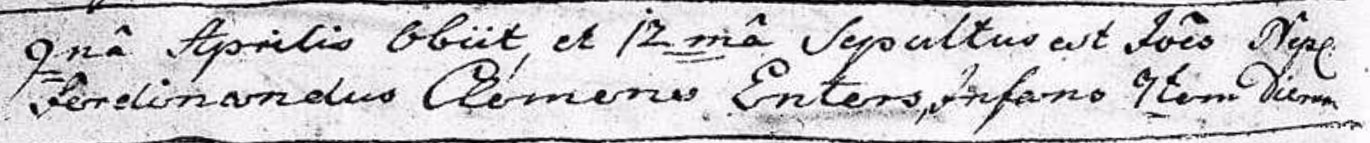 9nâ Aprilis Obiit, et 12mâ Sepultus est Joês Nepc.
Ferdinandus Clemens Enters, Infans 7tem Dierum